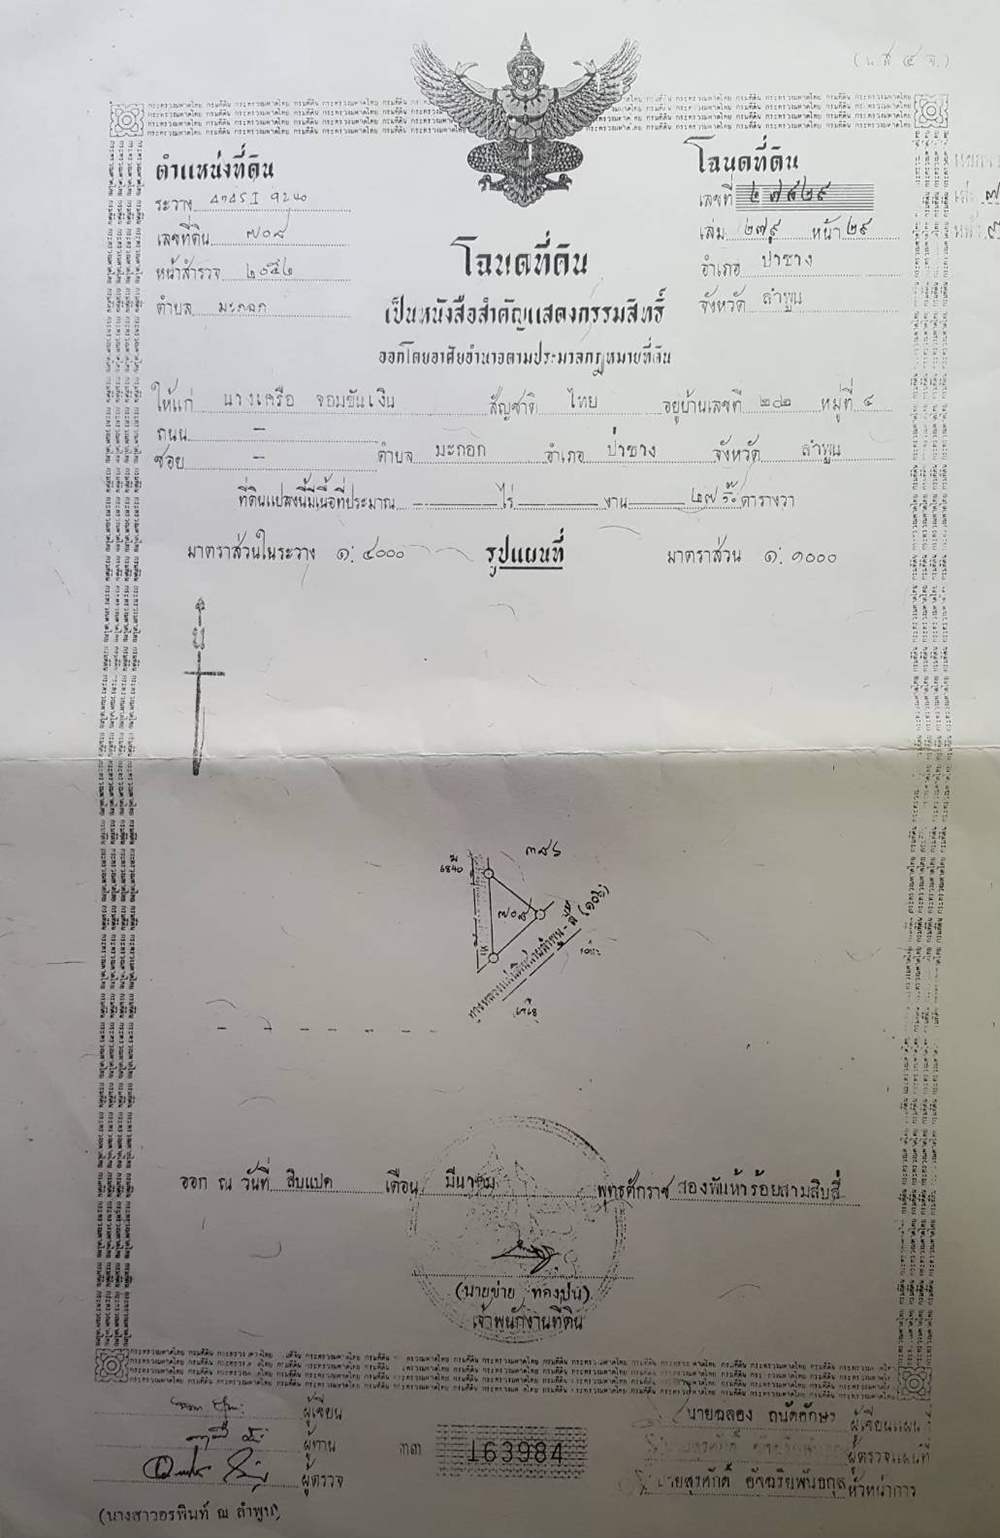 (น.ส ๔ จ.)
ตำแหน่งที่ดิน
ระวาง 4745 I 9240
เลขที่ดิน ๗๐๘
หน้าสำรวจ ๒๐๕๒
ตำบล มะกอก
โฉนดที่ดิน
เลขที่ ๒๗๘๒๙
เล่ม ๒๗๙ หน้า ๒๙
อำเภอ ป่าซาง
จังหวัด ลำพูน
โฉนดที่ดิน
เป็นหนังสือสำคัญแสดงกรรมสิทธิ์
ออกโดยอาศัยอำนาจตามประมวลกฎหมายที่ดิน
ให้แก่ นางเครือ จอมขันเงิน สัญชาติ ไทย อยู่บ้านเลขที่ ๒๐๒ หมู่ที่ ๔
ถนน –
ซอย – ตำบล มะกอก อำเภอ ป่าซาง จังหวัด ลำพูน
ที่ดินแปลงนี้มีเนื้อที่ประมาณ – ไร่ – งาน ๒๗ ตารางวา
มาตราส่วนในระวาง ๑: ๔๐๐๐ รูปแผนที่ มาตราส่วน ๑: ๑๐๐๐
น
6840
๓๘๖
๗๐๘
ทางหลวงแผ่นดินสายลำพูน-ลี้ (๑๐๖)
ออก ณ วันที่ สิบแปด เดือน มีนาคม พุทธศักราช สองพันห้าร้อยสามสิบสี่
(นายข่าย ทองปน)
เจ้าพนักงานที่ดิน
ผู้เขียน
ผู้ทาน
ผู้ตรวจ
(นางสาวอรพินท์ ณ ลำพูน)
ตาต 163984
นายฉลอง ถนัดอักษร ผู้เขียนแผนที่
นายสุรศักดิ์ อัจฉริยพันธกุล ผู้ตรวจแผนที่
นายสุรศักดิ์ อัจฉริยพันธกุล หัวหน้าการ